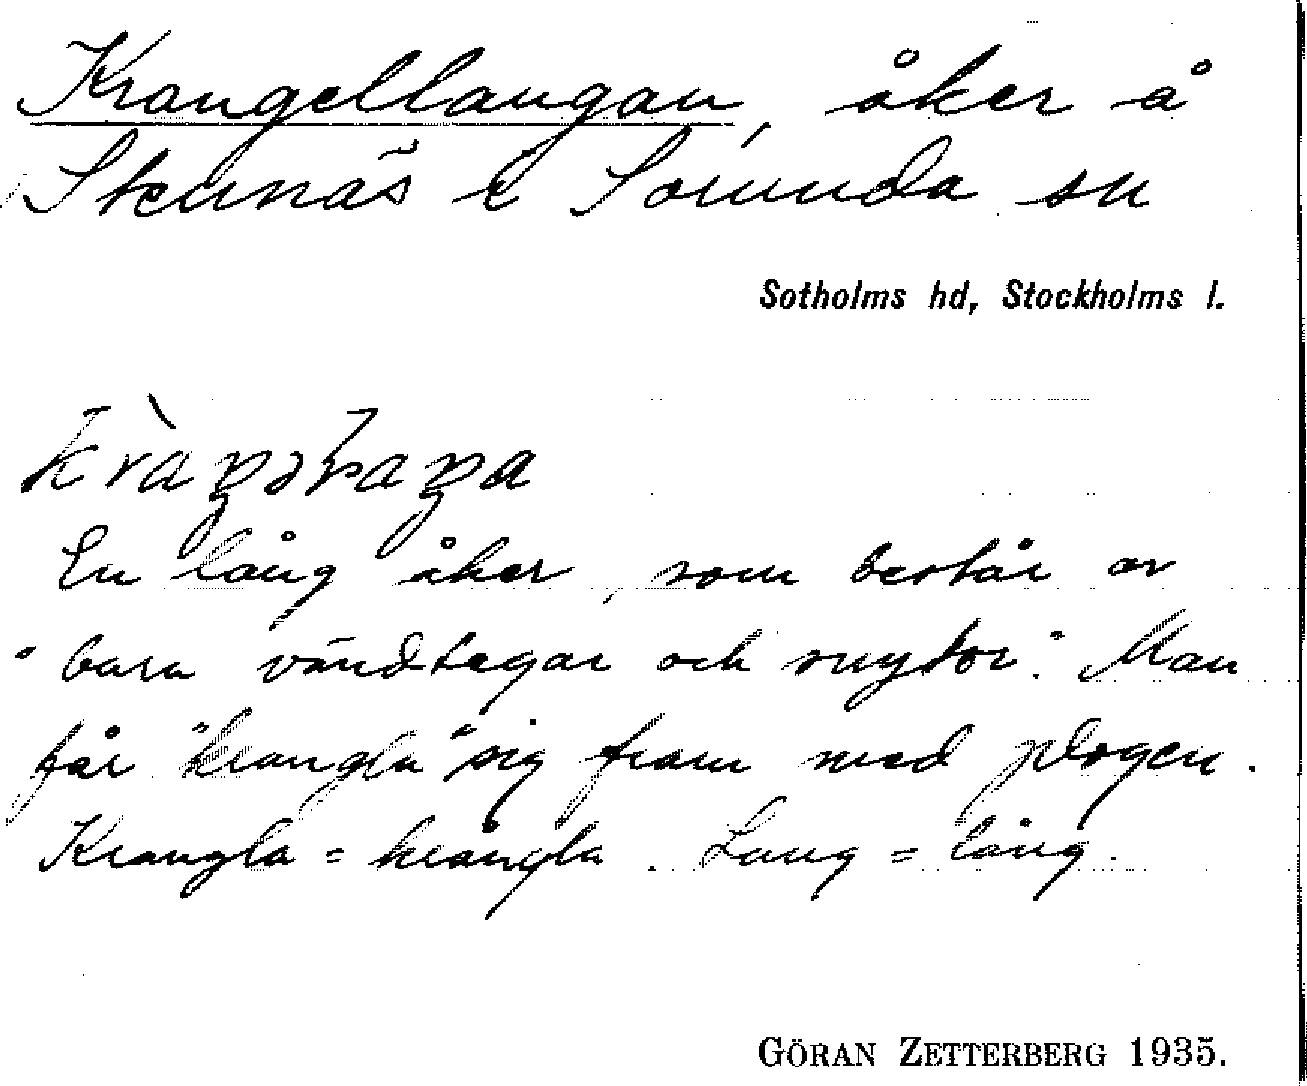 Krangellangan, åker å
Stennäs i Sorunda sn
Sotholms hd, Stockholms l.
En lång åker, som består av
"bara vändtegar och snytor." Man
får "krangla" sig fram med plogen.
Krangla = krångla. Lang = lång.
GÖRAN ZETTERBERG 1935.